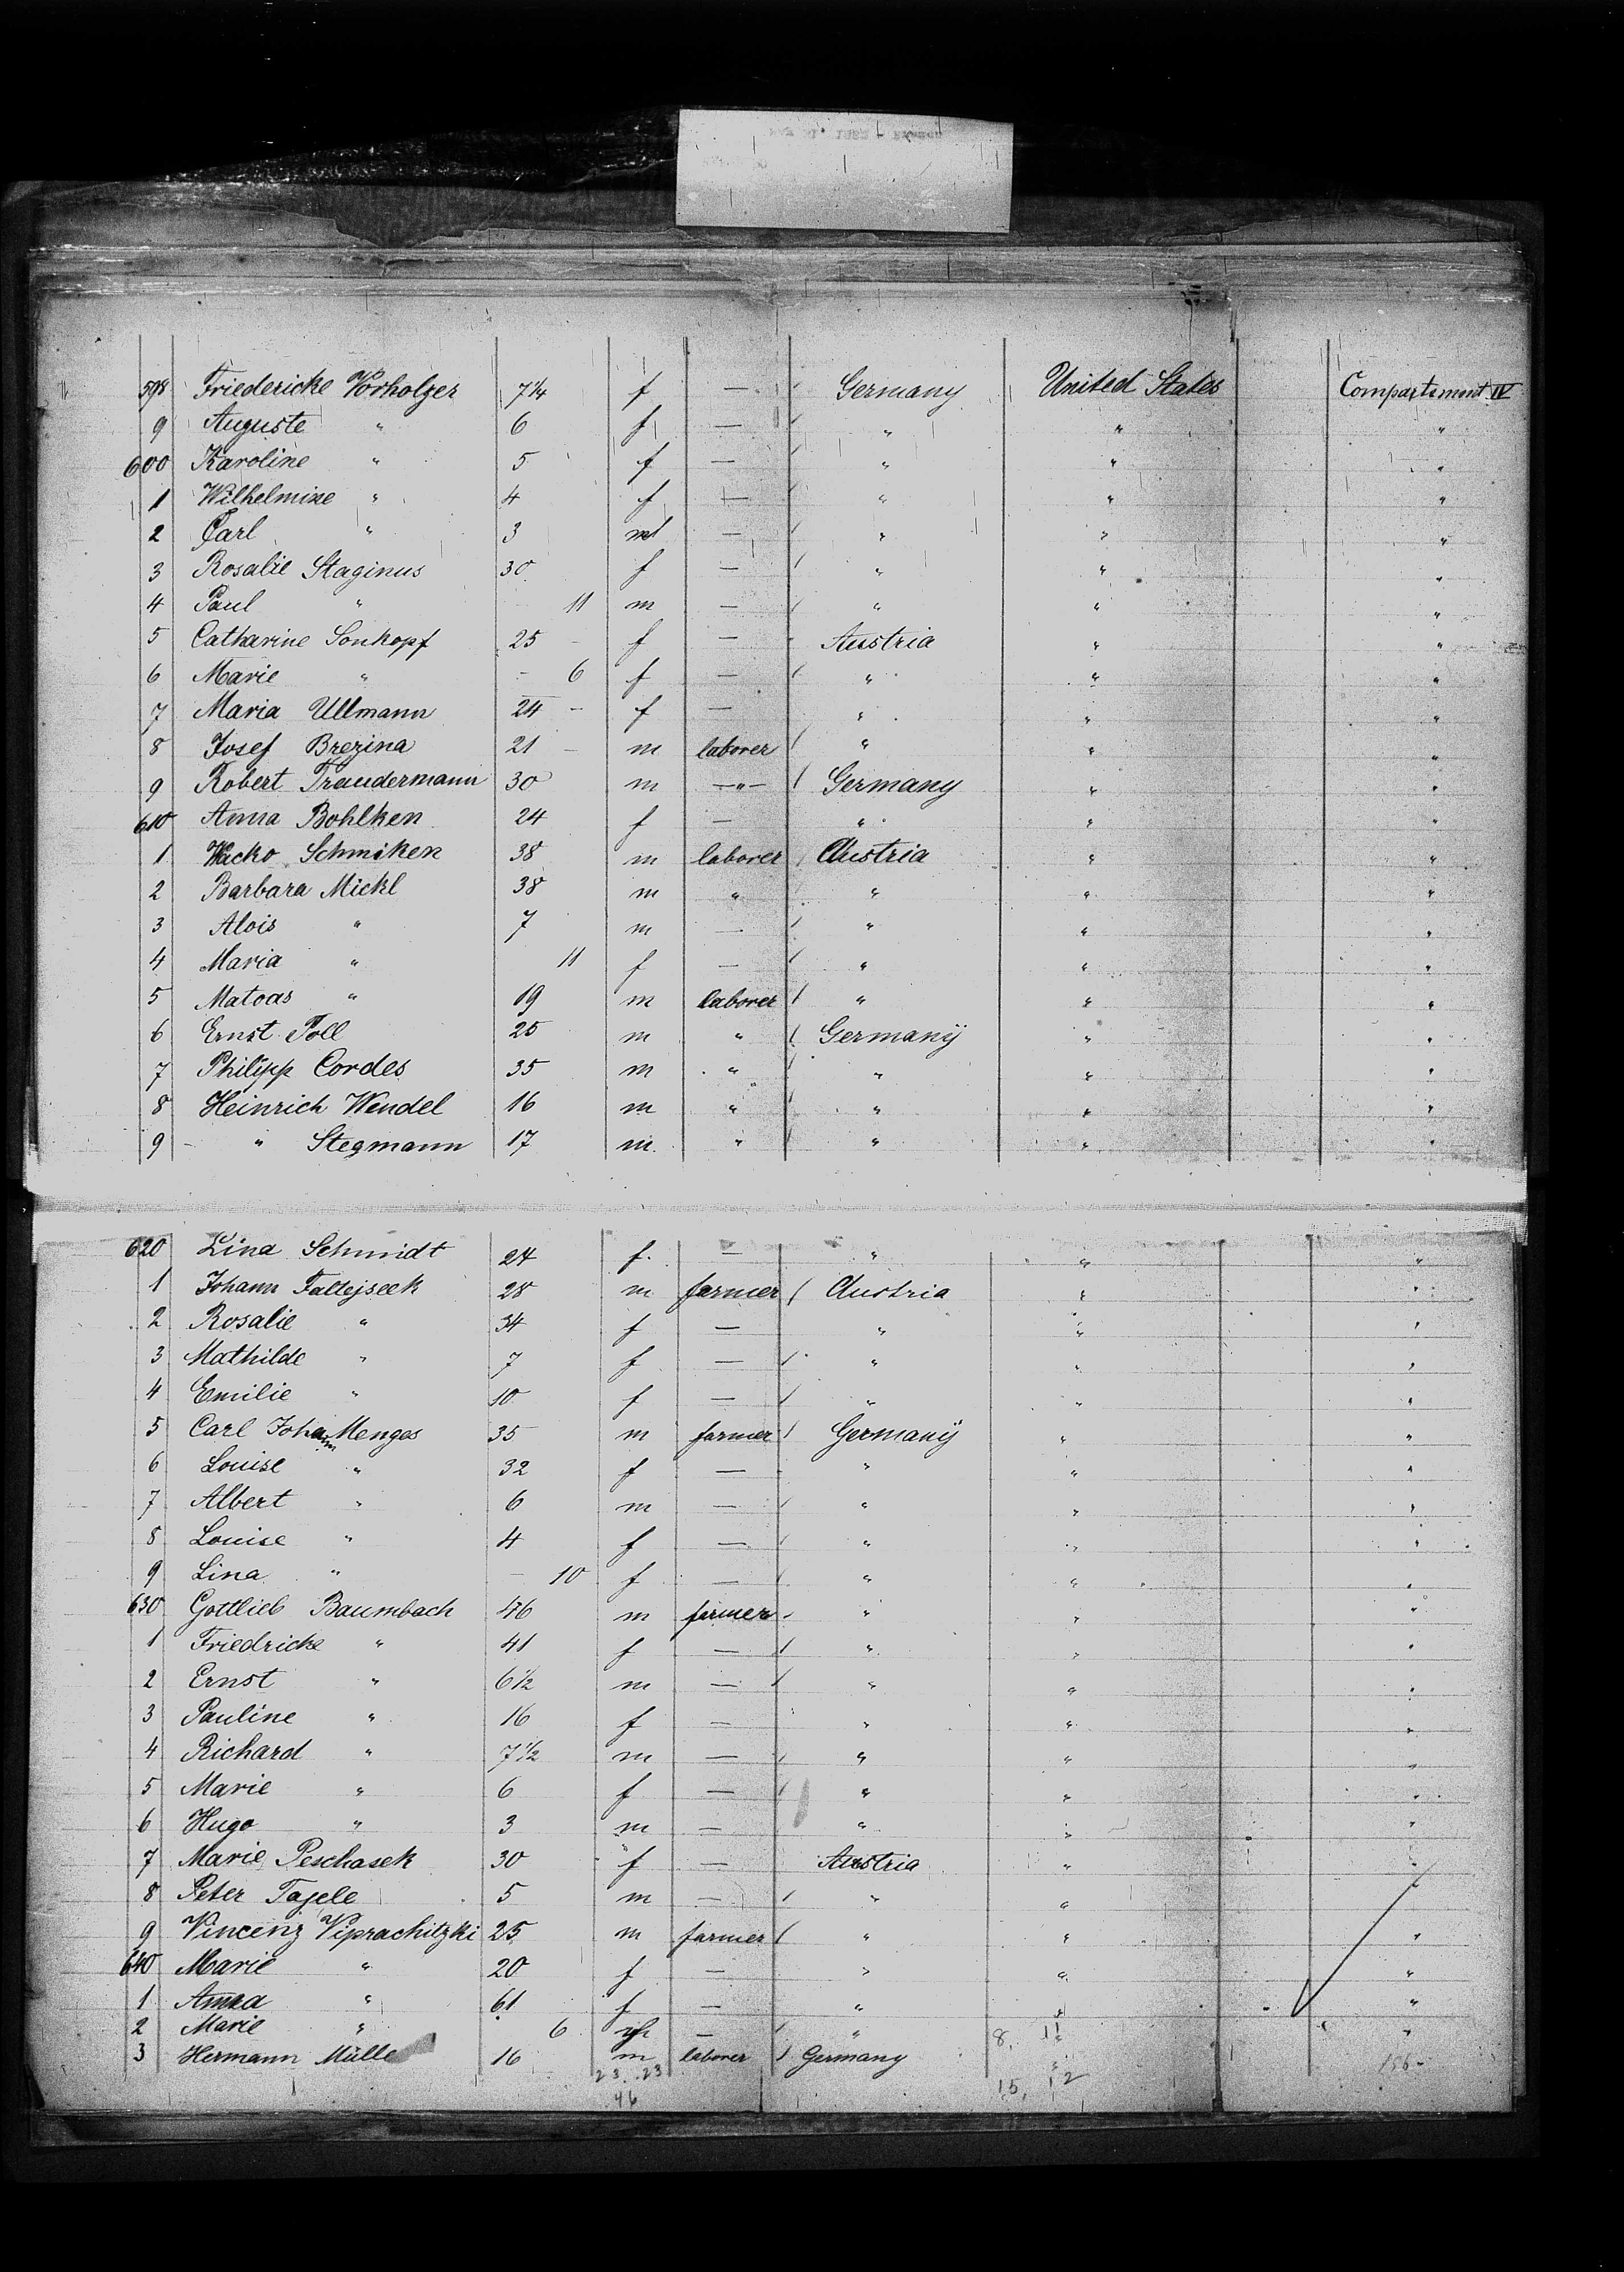 598 Friedericke Vorholzer 7¼ f — Germany United States Compartement IV
9 Auguste " 6 f — " " "
600 Karoline " 5 f — " " "
1 Wilhelmine " 4 f — " " "
2 Carl " 3 m — " " "
3 Rosalie Staginus 30 f — " " "
4 Paul " 11 m — " " "
5 Catharine Sonkopf 25 - f — Austria " "
6 Marie " - 6 f — " " "
7 Maria Ullmann 24 - f — " " "
8 Josef Brezina 21 - m laborer " " "
9 Robert Traudermann 30 m —"— Germany " "
610 Anna Bohlken 24 f — " " "
1 Wacko Schmiken 38 m laborer Austria " "
2 Barbara Mickl 38 m " " " "
3 Alois " 7 m — " " "
4 Maria " 11 f — " " "
5 Matoas " 19 m laborer " " "
6 Ernst Toll 25 m " Germany " "
7 Philipp Cordes 35 m " " " "
8 Heinrich Wendel 16 m " " " "
9 - " Stegmann 17 m " " " "
620 Lina Schmidt 24 f. — " " "
1 Johann Faltejseek 28 m farmer Austria " "
2 Rosalie " 34 f — " " "
3 Mathilde " 7 f — " " "
4 Emilie " 10 f — " " "
5 Carl Johann Menges 35 m farmer Germany " "
6 Louise " 32 f — " " "
7 Albert " 6 m — " " "
8 Louise " 4 f — " " "
9 Lina " - 10 f — " " "
630 Gottlieb Baumbach 46 m farmer " " "
1 Friedricke " 41 f — " " "
2 Ernst " 6½ m — " " "
3 Pauline " 16 f — " " "
4 Richard " 7½ m — " " "
5 Marie " 6 f — " " "
6 Hugo " 3 m — " " "
7 Marie Peschasek 30 f — Austria " "
8 Peter Tajele 5 m — " " "
9 Vincenz Viprachitzki 25 m farmer " " "
640 Marie " 20 f — " " "
1 Anna " 61 f — " " "
2 Marie " 6 — " 8, 11 "
3 Hermann Mülle 16 m laborer Germany 156-
23 . 23 15, 12
46